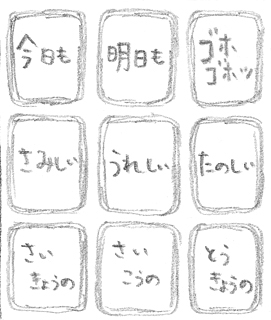 今日も
明日も
ゴホ
ゴホッ
さみしい
うれしい
たのしい
さい
きょうの
さい
こうの
とう
きょうの